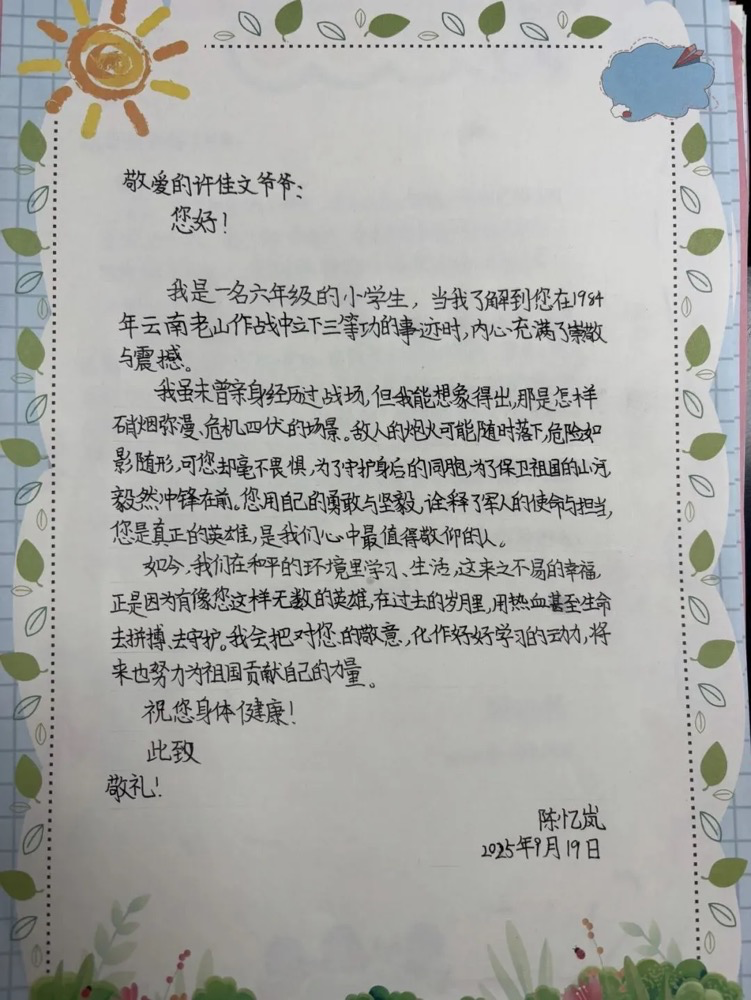 敬爱的许佳文爷爷：
您好！
我是一名六年级的小学生，当我了解到您在1984
年云南老山作战中立下三等功的事迹时，内心充满了崇敬
与震撼。
我虽未曾亲身经历过战场，但我能想象得出，那是怎样
硝烟弥漫、危机四伏的场景。敌人的炮火可能随时落下，危险如
影随形，可您却毫不畏惧，为了守护身后的同胞，为了保卫祖国的山河
毅然冲锋在前。您用自己的勇敢与坚毅，诠释了军人的使命与担当，
您是真正的英雄，是我们心中最值得敬仰的人。
如今，我们在和平的环境里学习、生活，这来之不易的幸福，
正是因为有像您这样无数的英雄，在过去的岁月里，用热血甚至生命
去拼搏、去守护。我会把对您的敬意，化作好好学习的动力，将
来也努力为祖国贡献自己的力量。
祝您身体健康！
此致
敬礼！
陈忆岚
2025年9月19日